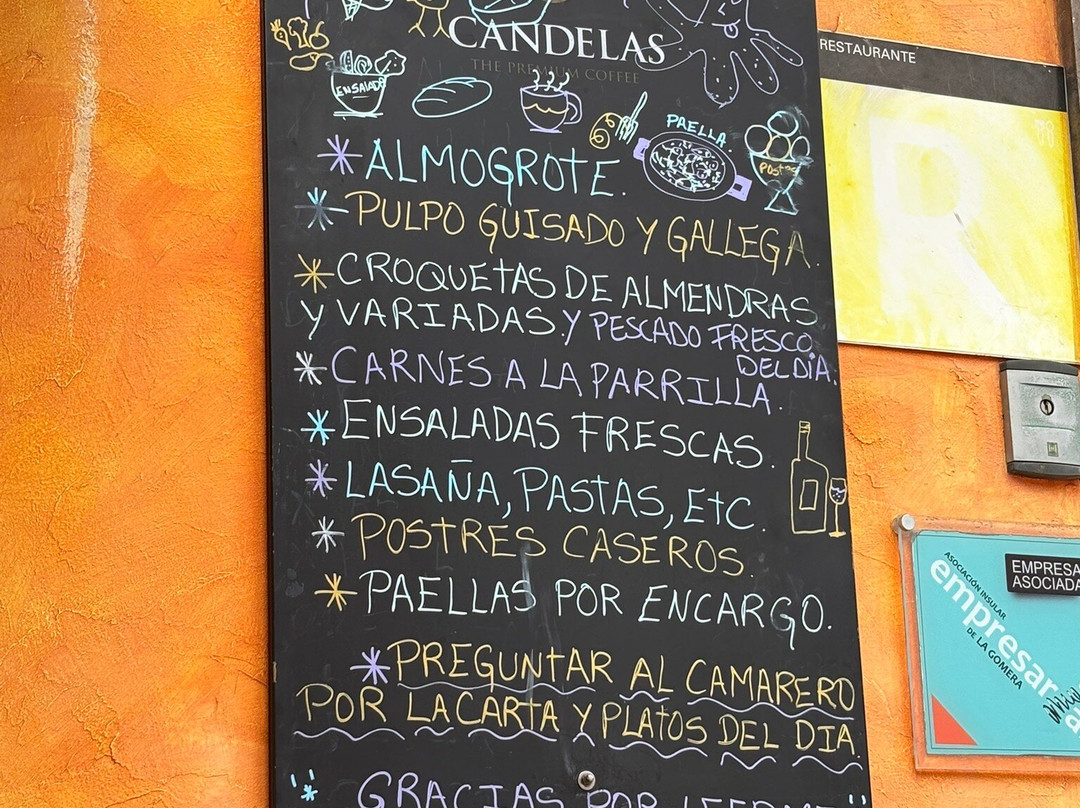 CANDELAS
THE PREMIUM COFFEE
ENSALADA
PAELLA
Postres
* ALMOGROTE.
* PULPO GUISADO Y GALLEGA.
* CROQUETAS DE ALMENDRAS
Y VARIADAS Y PESCADO FRESCO
DEL DIA.
* CARNES A LA PARRILLA.
* ENSALADAS FRESCAS.
* LASAÑA, PASTAS, Etc.
* POSTRES CASEROS.
* PAELLAS POR ENCARGO.
* PREGUNTAR AL CAMARERO
POR LA CARTA Y PLATOS DEL DIA.
GRACIAS POR LEERME
RESTAURANTE
R
EMPRESA
ASOCIADA
ASOCIACIÓN INSULAR
empresar
DE LA GOMERA